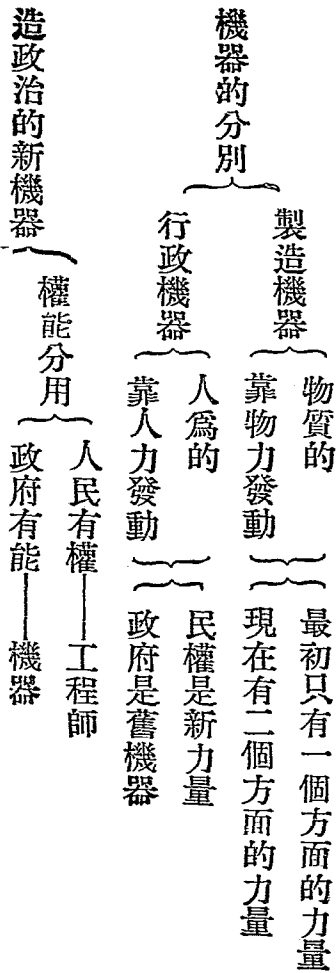 機器的分別
製造機器
物質的
靠物力發動
最初只有一個方面的力量
現在有二個方面的力量
行政機器
人爲的
靠人力發動
民權是新力量
政府是舊機器
造政治的新機器
權能分用
人民有權——工程師
政府有能——機器